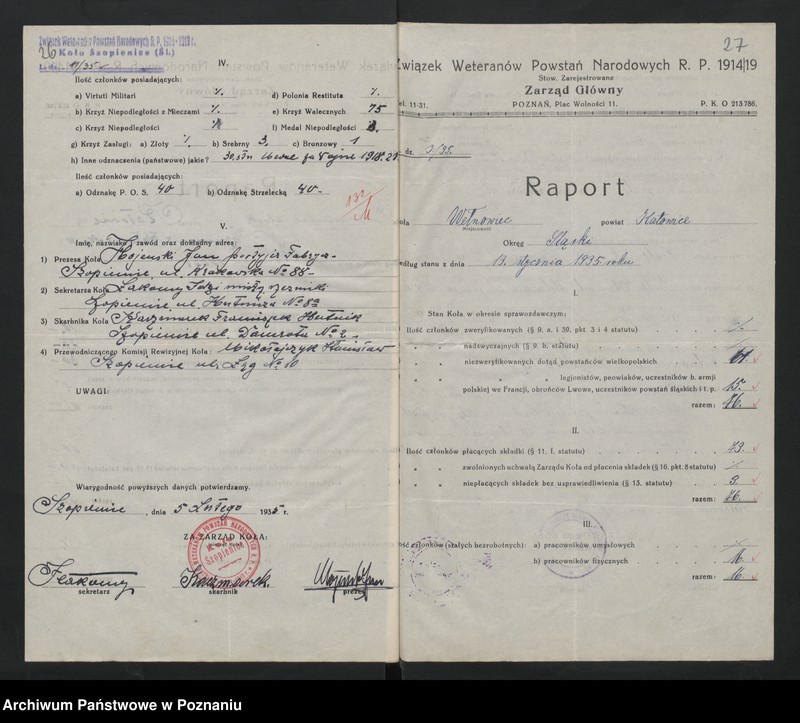 26
Związek Weteranów Powstań Narodowych R. P. 1914-1919 r.
Koło Szopienice (Śl.)
L. dz. 11/35
IV.
Ilość członków posiadających:
a) Virtuti Militari ./. d) Polonia Restituta ./.
b) Krzyż Niepodległości z Mieczami ./. e) Krzyż Walecznych 75
c) Krzyż Niepodległości f) Medal Niepodległości
g) Krzyż Zasługi: a) Złoty ./. b) Srebrny 3. c) Bronzowy 1
h) Inne odznaczenia (państwowe) jakie?
Ilość członków posiadających:
a) Odznakę P. O. S. 40 b) Odznakę Strzelecką 40-
V.
Imię, nazwisko, zawód oraz dokładny adres:
1) Prezesa Koła Jan
Szopienice, ul. Krakowska No 88-
2) Sekretarza Koła
Szopienice ul. Hutnicza No 8a
3) Skarbnika Koła Kaczmarek Franciszek Hutnik
Szopienice ul. No 2.
4) Przewodniczącego Komisji Rewizyjnej Koła: Mikołajczyk Stanisław
Szopienice ul. No 10
UWAGI:
Wiarygodność powyższych danych potwierdzamy.
Szopienice, dnia 5 Lutego 1935 r.
ZA ZARZĄD KOŁA:
Szopienice
Kaczmarek.
sekretarz skarbnik prezes
27
Związek Weteranów Powstań Narodowych R. P. 1914|19
Stow. Zarejestrowane
Zarząd Główny
Tel. 11-31. POZNAŃ, Plac Wolności 11. P. K. O 213786.
dz. 3/35.
Raport
Koła Wełnowiec powiat Katowice
Miejscowość
Okręg Śląski
według stanu z dnia 13. stycznia 1935 roku
I.
Stan Koła w okresie sprawozdawczym:
Ilość członków zweryfikowanych (§ 9. a i 39. pkt. 3 i 4 statutu) ./.
" " nadzwyczajnych (§ 9. b. statutu) ./.
" " niezweryfikowanych dotąd powstańców wielkopolskich 61.
" " " legjonistów, peowiaków, uczestników b. armji
polskiej we Francji, obrońców Lwowa, uczestników powstań śląskich i t. p. 15.
razem: 76.
II.
Ilość członków płacących składki (§ 11. f. statutu) 73.
" " zwolnionych uchwałą Zarządu Koła od płacenia składek (§ 16. pkt. 8 statutu) ./.
" " niepłacących składek bez usprawiedliwienia (§ 13. statutu) 3.
razem: 76.
III.
Ilość członków (stałych bezrobotnych): a) pracowników umysłowych ./.
b) pracowników fizycznych 16.
razem: 16.
Archiwum Państwowe w Poznaniu